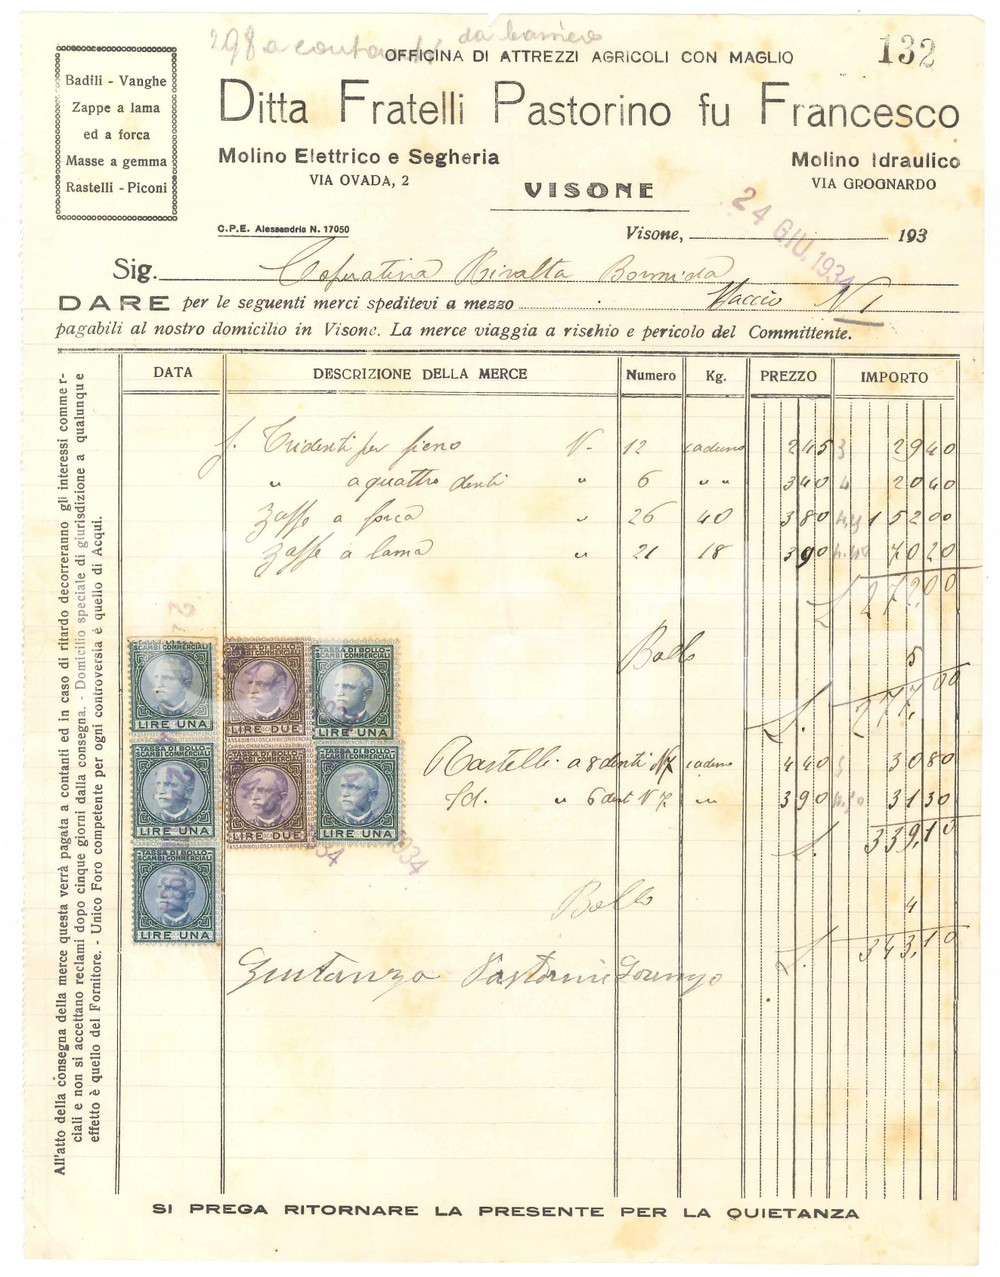 298 a contanti da
132
OFFICINA DI ATTREZZI AGRICOLI CON MAGLIO
Ditta Fratelli Pastorino fu Francesco
Badili - Vanghe
Zappe a lama
ed a forca
Masse a gemma
Rastelli - Piconi
Molino Elettrico e Segheria
VIA OVADA, 2
Molino Idraulico
VIA GROGNARDO
VISONE
C.P.E. Alessandria N. 17050
Visone, 193
24 GIU. 1934
Sig. Coperativa Rivalta Bormida
DARE per le seguenti merci speditevi a mezzo Vaccio N 1
pagabili al nostro domicilio in Visone. La merce viaggia a rischio e pericolo del Committente.
DATA DESCRIZIONE DELLA MERCE Numero Kg. PREZZO IMPORTO
Tridenti per fieno N. 12 caduno 245 2940
" a quattro denti " 6 " " 340 2040
Zappe a forca " 26 40 380 15200
Zappe a lama " 21 18 390 7020
L 272,00
Bollo 5
L. 277,00
Rastelli a 8 denti N 7 caduno 440 3080
Id. " 6 dent N 7 " 390 3130
L. 339,10
Bollo 4
L. 343,10
Pastorino Lorenzo
TASSA DI BOLLO
SCAMBI COMMERCIALI
LIRE UNA
TASSA DI BOLLO
SCAMBI COMMERCIALI
LIRE DUE
TASSA DI BOLLO
SCAMBI COMMERCIALI
LIRE UNA
TASSA DI BOLLO
SCAMBI COMMERCIALI
LIRE UNA
TASSA DI BOLLO
SCAMBI COMMERCIALI
LIRE DUE
TASSA DI BOLLO
SCAMBI COMMERCIALI
LIRE UNA
TASSA DI BOLLO
SCAMBI COMMERCIALI
LIRE UNA
All'atto della consegna della merce questa verrà pagata a contanti ed in caso di ritardo decorreranno gli interessi commer-
ciali e non si accettano reclami dopo cinque giorni dalla consegna. - Domicilio speciale di giurisdizione a qualunque
effetto è quello del Fornitore. - Unico Foro competente per ogni controversia é quello di Acqui.
SI PREGA RITORNARE LA PRESENTE PER LA QUIETANZA